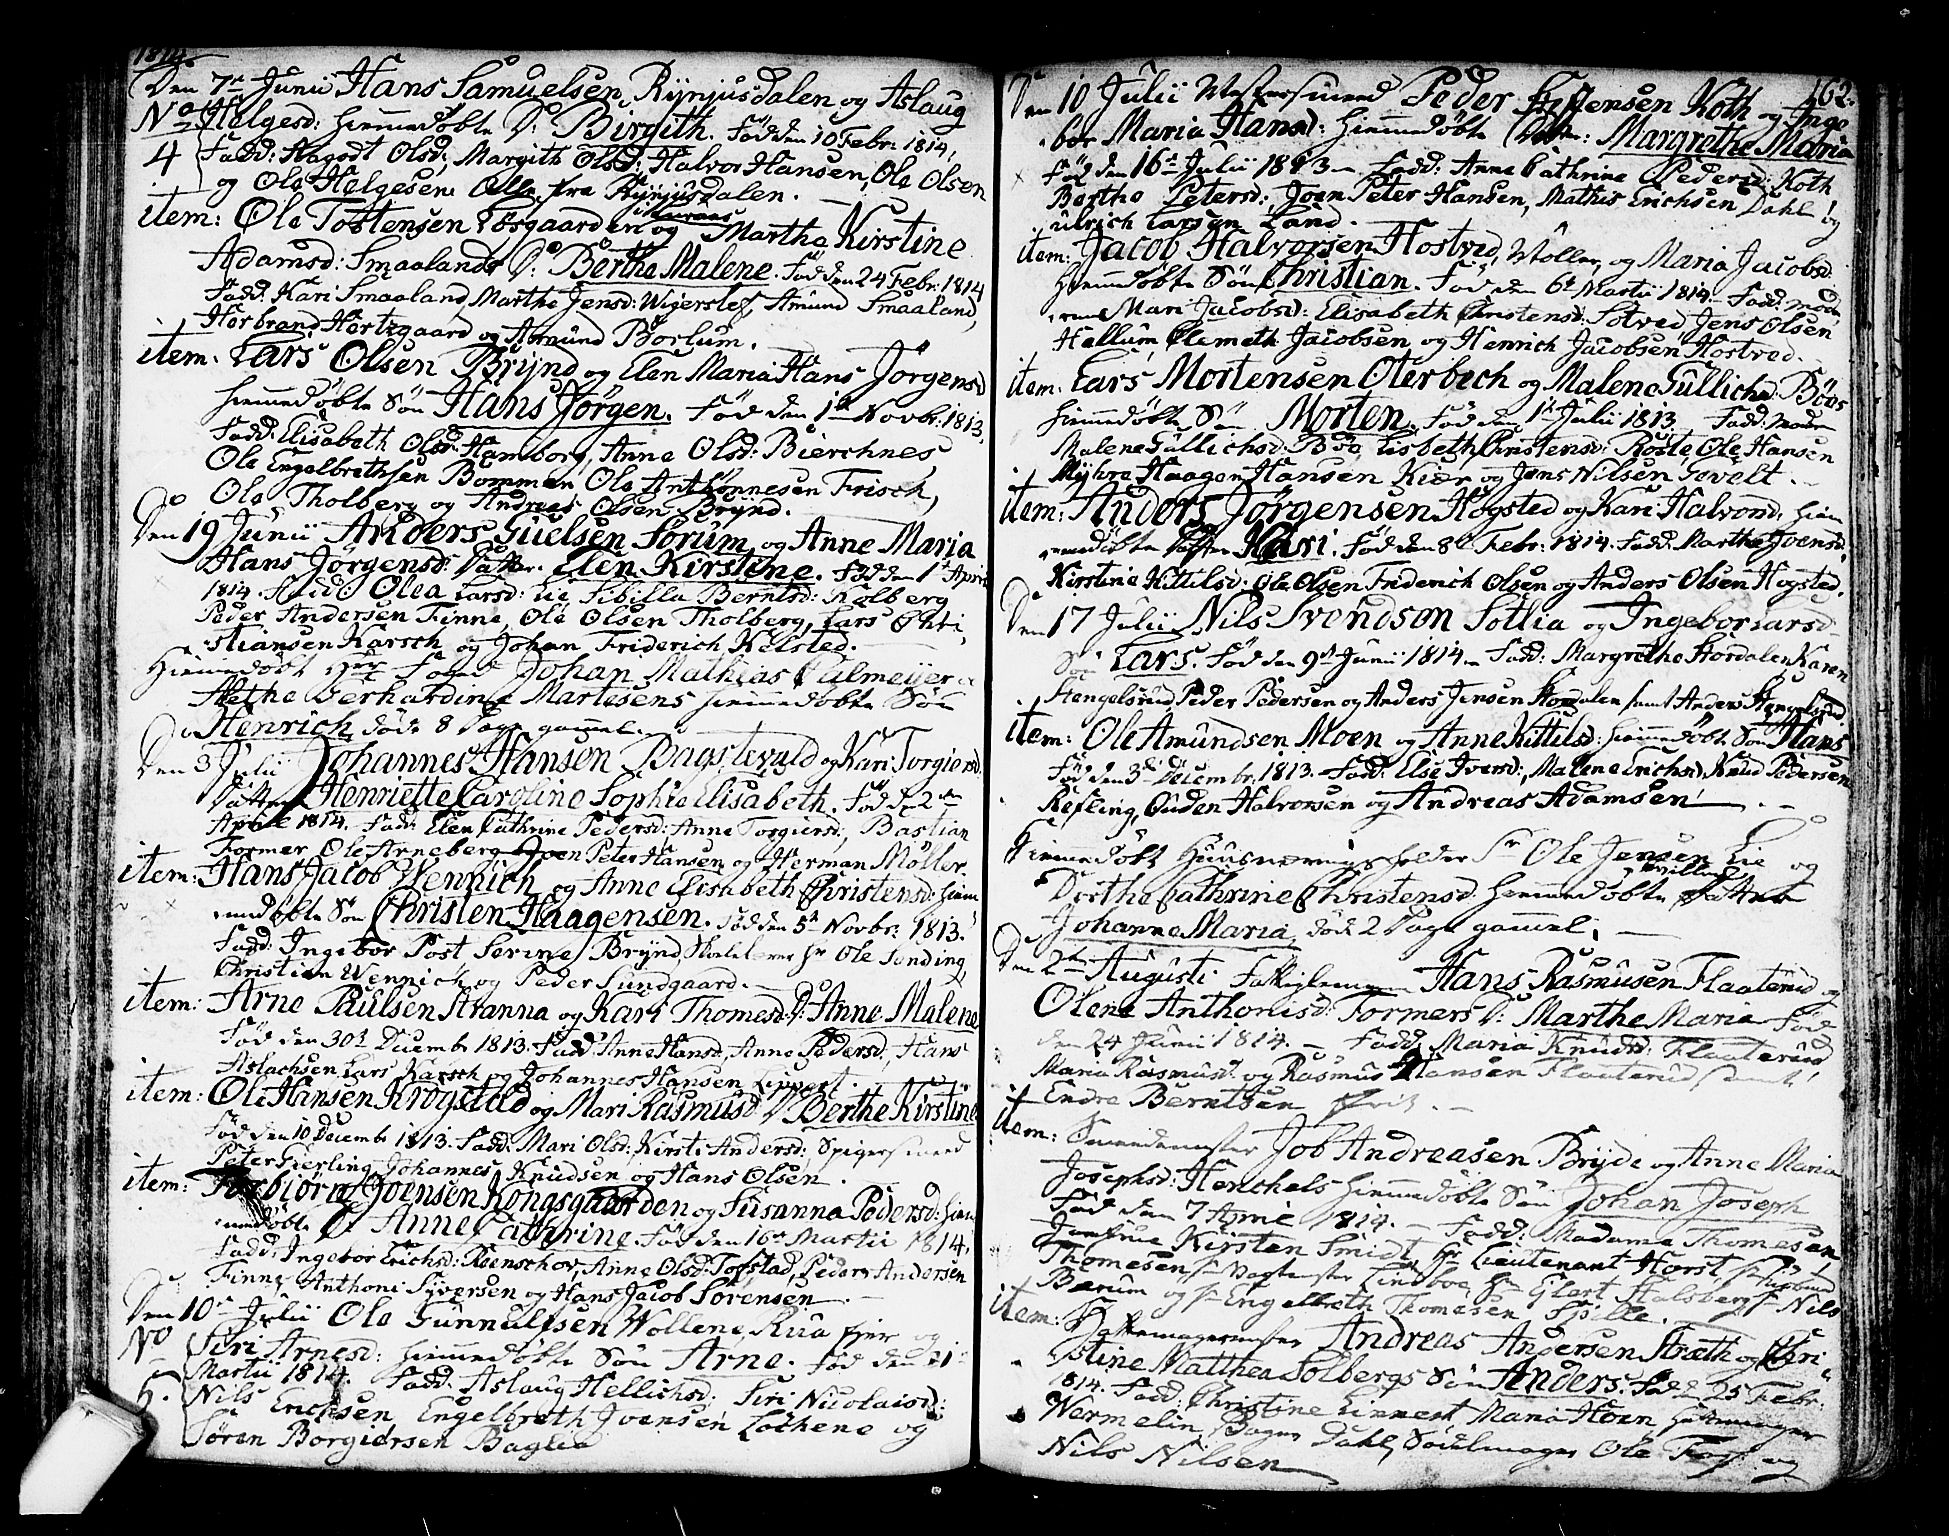 1814.
Den 7de Junii Hans Samuelsen Rynjusdalen og Aslaug
No Helgesd: hiemmedøbte D: Birgith. Fød den 10 Febr: 1814,
4 Fadd: Aagodt Olsd: Margith Olsd: Halvor Hansen, Ole Olsen
og Ole Helgesen Alle fra Rynjusdalen.
item: Ole Tostensen Løsgaarden og Martha Kirstine
Adamsd: Smaalands D: Berthe Malene. Fød den 24 Febr: 1814
Fadd: Kari Smaaland, Marthe Jensd: Wigerslef, Amund Smaaland,
Herbrand Hertzgaard og Amund Borlum.
item. Lars Olsen Brynd og Elen Maria Hans Jørgensd
hiemmedøbte Søn Hans Jørgen. Fød den 1te Novbr: 1813.
Fadd: Elisabeth Olsd: Hamborg, Anne Olsd: Bierchnes
Ole Engelbrethsen Bomman Ole Anthonnesen Frisch,
Ole Tholberg og Andreas Olsen Brynd.
Den 19 Junii Anders Guelsen Sorum og Anne Maria
Hans Jørgensd: Datter. Elen Kirstine. Fød den 1te April
1814. Fadd: Olea Larsd: Lie Sibilla Berntsd: Kolberg
Peder Andersen Finne, Ole Olsen Tholberg, Lars Chri,
stiansen Karsch og Johan Friderich Kelsted.
Hiemmedøbt Johan Mathias Calmeijer &
Methe Gerhardine Martesens hiemmedøbte Søn
Henrich døde 8 Dage gammel.
Den 3 Julii Johannes Hansen Bagstevold og Kari Torgiersd
Datter Henriette Caroline Sophie Elisabeth. Fød den 2den
April 1814. Fadd: Elen Cathrine Pedersd: Anne Torgiersd:, Bastian
Former Ole Arneberg Joen Peter Hansen og Herman Möller.
item: Hans Jacob Wennich og Anne Elisabeth Christensd: hiem
medøbte Søn Christen Haagensen. Fød den 5te Novbr: 1813.
Fadd: Ingebor Post Serine Brynd, Ole Sonding,
Christian Wennich og Peder Sundgaard.
item: Arne Paulsen Stranna og Kari Thomesd: D: Anne Malene
Fød den 30te Decembr 1813. Fadd: Anne Hansd, Anne Pedersd, Hans
Aslachsen, Lars Karsch og Johannes Hansen Lippert.
item: Ole Hansen Krogstad og Mari Rasmusd D: Berthe Kirstine
Fød den 10 Decembr 1813. Fadd: Mari Olsd: Kirsti Andersd: Spigersmed
Peter Gierling, Johannes Knudsen og Hans Olsen.
item: Torbiørn Joensen Kongsgaarden og Susanna Pedersd: hiem
medøbte D: Anne Cathrine. Fød den 16de Martii 1814.
Fadd: Ingebor Erichsd: Rosenschov, Anne Olsd: Tofstad, Peder Andersen
Finne, Anthoni Syversen og Hans Jacob Sørensen.
Den 10de Julii Ole Gunnulfsen Wollene, Rua fjer og
No Siri Arnesd: hiemmedøbte Søn Arne. Fød den 21
5. Martii 1814. Fadd: Aslaug Hellichsd: Siri Nicolaisd:
Nils Ericksen, Engelbreth Joensen Lochene og
Søren Borgiersen Baglia
162.
Den 10 Julii Mestersmed Peder Koth og Inge
bor Maria Hansd: hiemmedøbte Datter: Margrethe Maria
Fød den 16de Julii 1813 Fadd: Anne Cathrine Pedersd: Koth
Berthe Petersd:, Joen Peter Hansen, Mathis Erichsen Dahl og
Ulrich Larsen Land.
item: Jacob Halvorsen Hostved, Møller, og Maria Jacobsd:
hiemmedøbte Søn Christian. Fød den 6te Martii 1814. Fadd: Mod
eren Mari Jacobsd: Elisabeth Christensd: Sotved Jens Olsen
Hellum Clemeth Jacobsen og Henrich Jacobsen Hostved.
item: Lars Mortensen Oterbech og Malene Gullichsd: Böes
hiemmedøbte Søn Morten. Fød den 1te Julii 1813. Fadd: Modern
Malene Gullichsd: Böe Lisbeth Christensd: Roste, Ole Hansen
Myhre Haagen Hansen Kier og Jens Nilsen Gevelt.
item: Anders Jørgensen Hogsted og Kari Halvorsd: hiem
medøbte Datter Kari. Fød den 8de Febr: 1814. Fadd: Marthe Joensd:
Kirstine Kittilsd: Ole Olsen Friderich Olsen og Anders Olsen Hogsted.
Den 17 Julii Nils Svendson Sollia og Ingebor Larsd
Søn Lars. Fød den 9de Junii 1814. Fadd: Margrethe Stordalen, Karen
Hengelsrud, Peder Pedersen og Anders Jensen Stordalen samt Anders Hengelsrud.
item: Ole Amundsen Moen og Anne Kittilsd: hiemmedøbte Søn Hans
Fød den 3de Decembr. 1813. Fadd: Else Iversd:, Malene Erichsd, Knud Pedersen
Refling, Guden Halvorsen og Andreas Adamsen
Hiemmedøbt Huusnærings Sr Ole Jensen Lie og
Dorthe Cathrine Christensd: hiemmedøbte Datter
Johanne Maria, døde 2 Dage gammel.
Den 2den Augusti Hans Rasmusen Flaaterud og
Olene Anthonisd: Formers D: Marthe Maria Fød
den 24 Junii 1814. Fadd: Maria Knudsd: Flaaterud
Maria Rasmusd: og Rasmus Hansen Flaaterud samt
Endre Berntsen
item: Job Andreasen Bryde og Anne Maria
Josephsd: Henchels hiemmedøbte Søn Johan Joseph
Fød den 7 April 1814. Fadd: Madame Thomesen,
Jomfrue Kirsten Smidt, Hr Lieutenant Horst
Thomesen Lindboe Glert Stalsberg Sr Nils
Bærum og Sr Engelbreth Thomesen
item: Andreas Andersen Stræth og Chri
stine Matthea Solbergs Søn Anders. Fød d 25 Febr:
1814. Fadd: Christine Linnert Maria Hoen
Wermelin, Bager Dahl, Sadelmager Ole og
Nils Nilsen